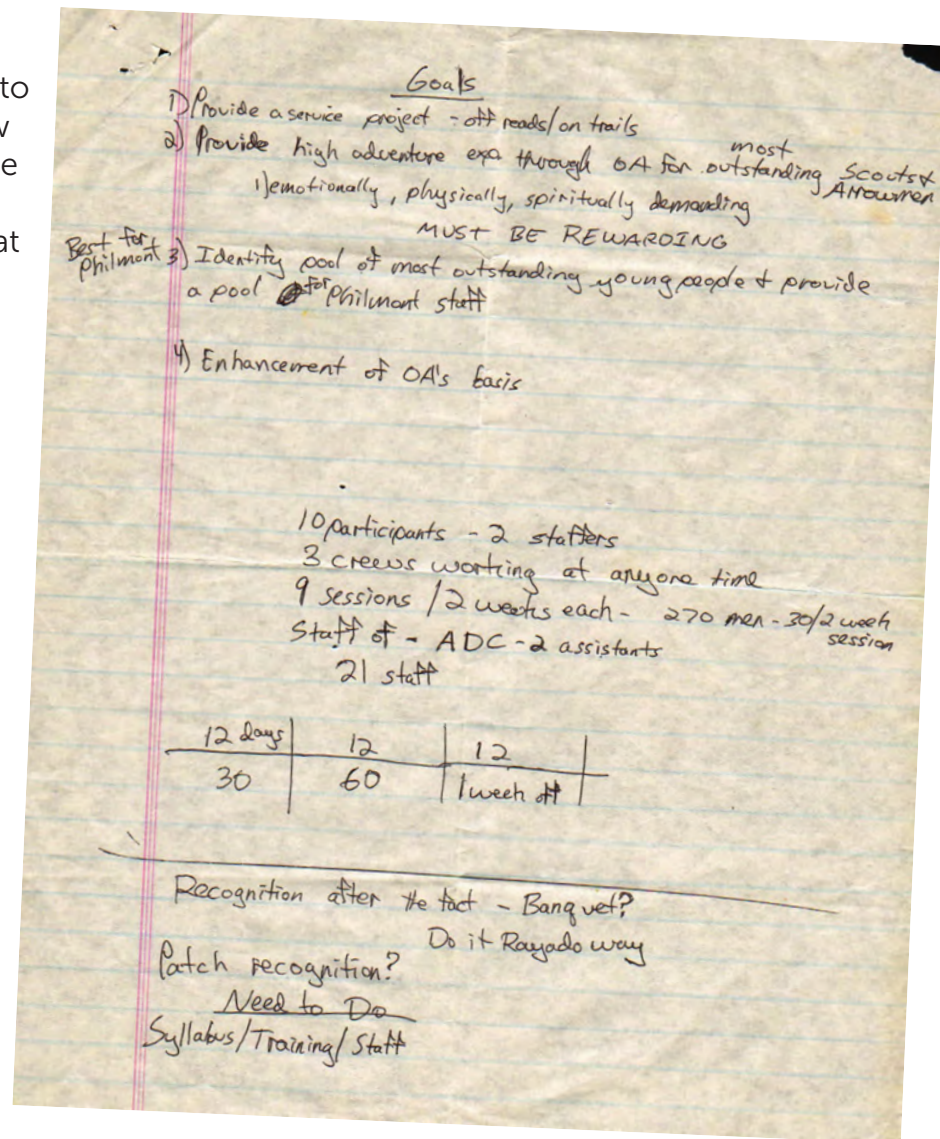 to
w
e
at
Goals
1) Provide a service project - off roads/on trails
2) Provide high adventure exp through OA for most outstanding Scouts & Arrowmen
1) emotionally, physically, spiritually demanding
MUST BE REWARDING
Best for Philmont 3) Identify pool of most outstanding young people & provide
a pool for Philmont staff
4) Enhancement of OA's basis
10 participants - 2 staffers
3 crews working at anyone time
9 sessions / 2 weeks each - 270 men - 30/2 week session
Staff of - ADC - 2 assistants
21 staff
12 days | 12 | 12
30 | 60 | 1 week off
Recognition after the fact - Banquet?
Do it Rayado way
Patch recognition?
Need to Do
Syllabus/Training/Staff